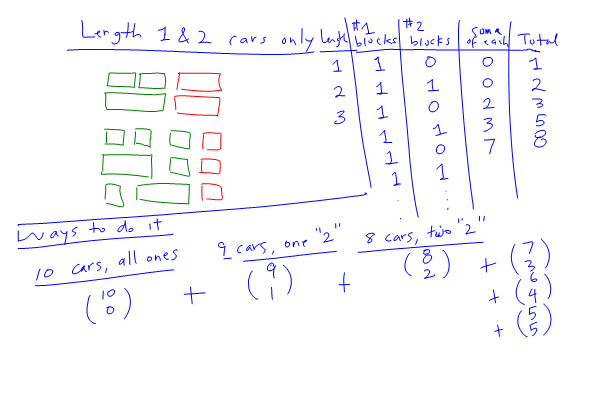 Length 1 & 2 cars only
Length #1 blocks #2 blocks Some of each Total
1 1 0 0 1
2 1 1 0 2
3 1 0 2 3
1 1 3 5
1 0 7 8
1 1
: : 
Ways to do it
10 cars, all ones
9 cars, one "2"
8 cars, two "2"
(10 0) + (9 1) + (8 2) + (7 3)
+ (6 4)
+ (5 5)